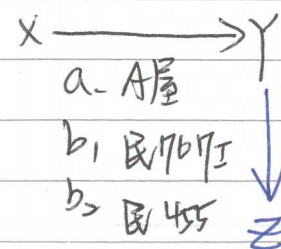 X → Y
a. A屋
b₁ 民767I
b₂ 民455
Z